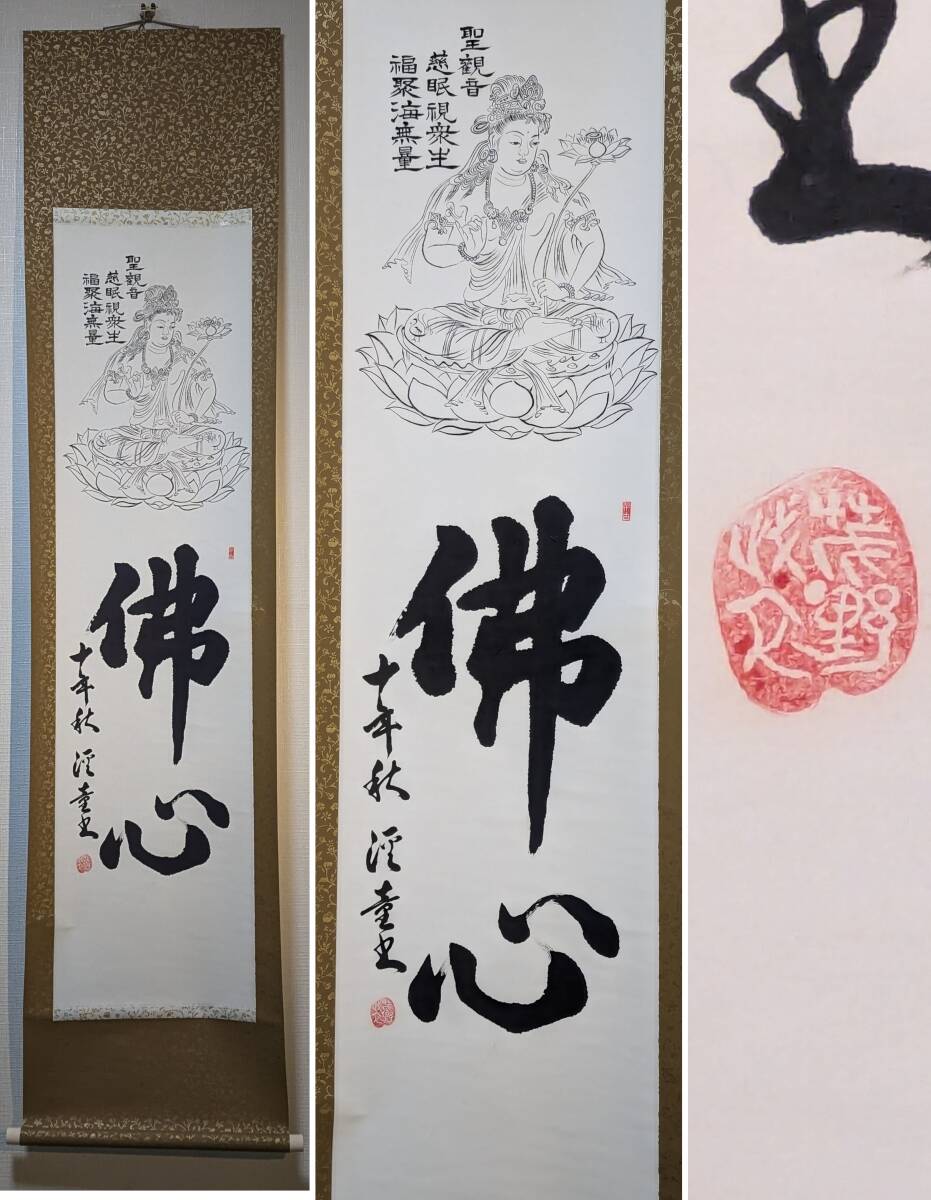 聖觀音
慈眼視衆生
福聚海無量
佛心
十年秋 渓童书
聖觀音
慈眼視衆生
福聚海無量
佛心
十年秋 渓童书